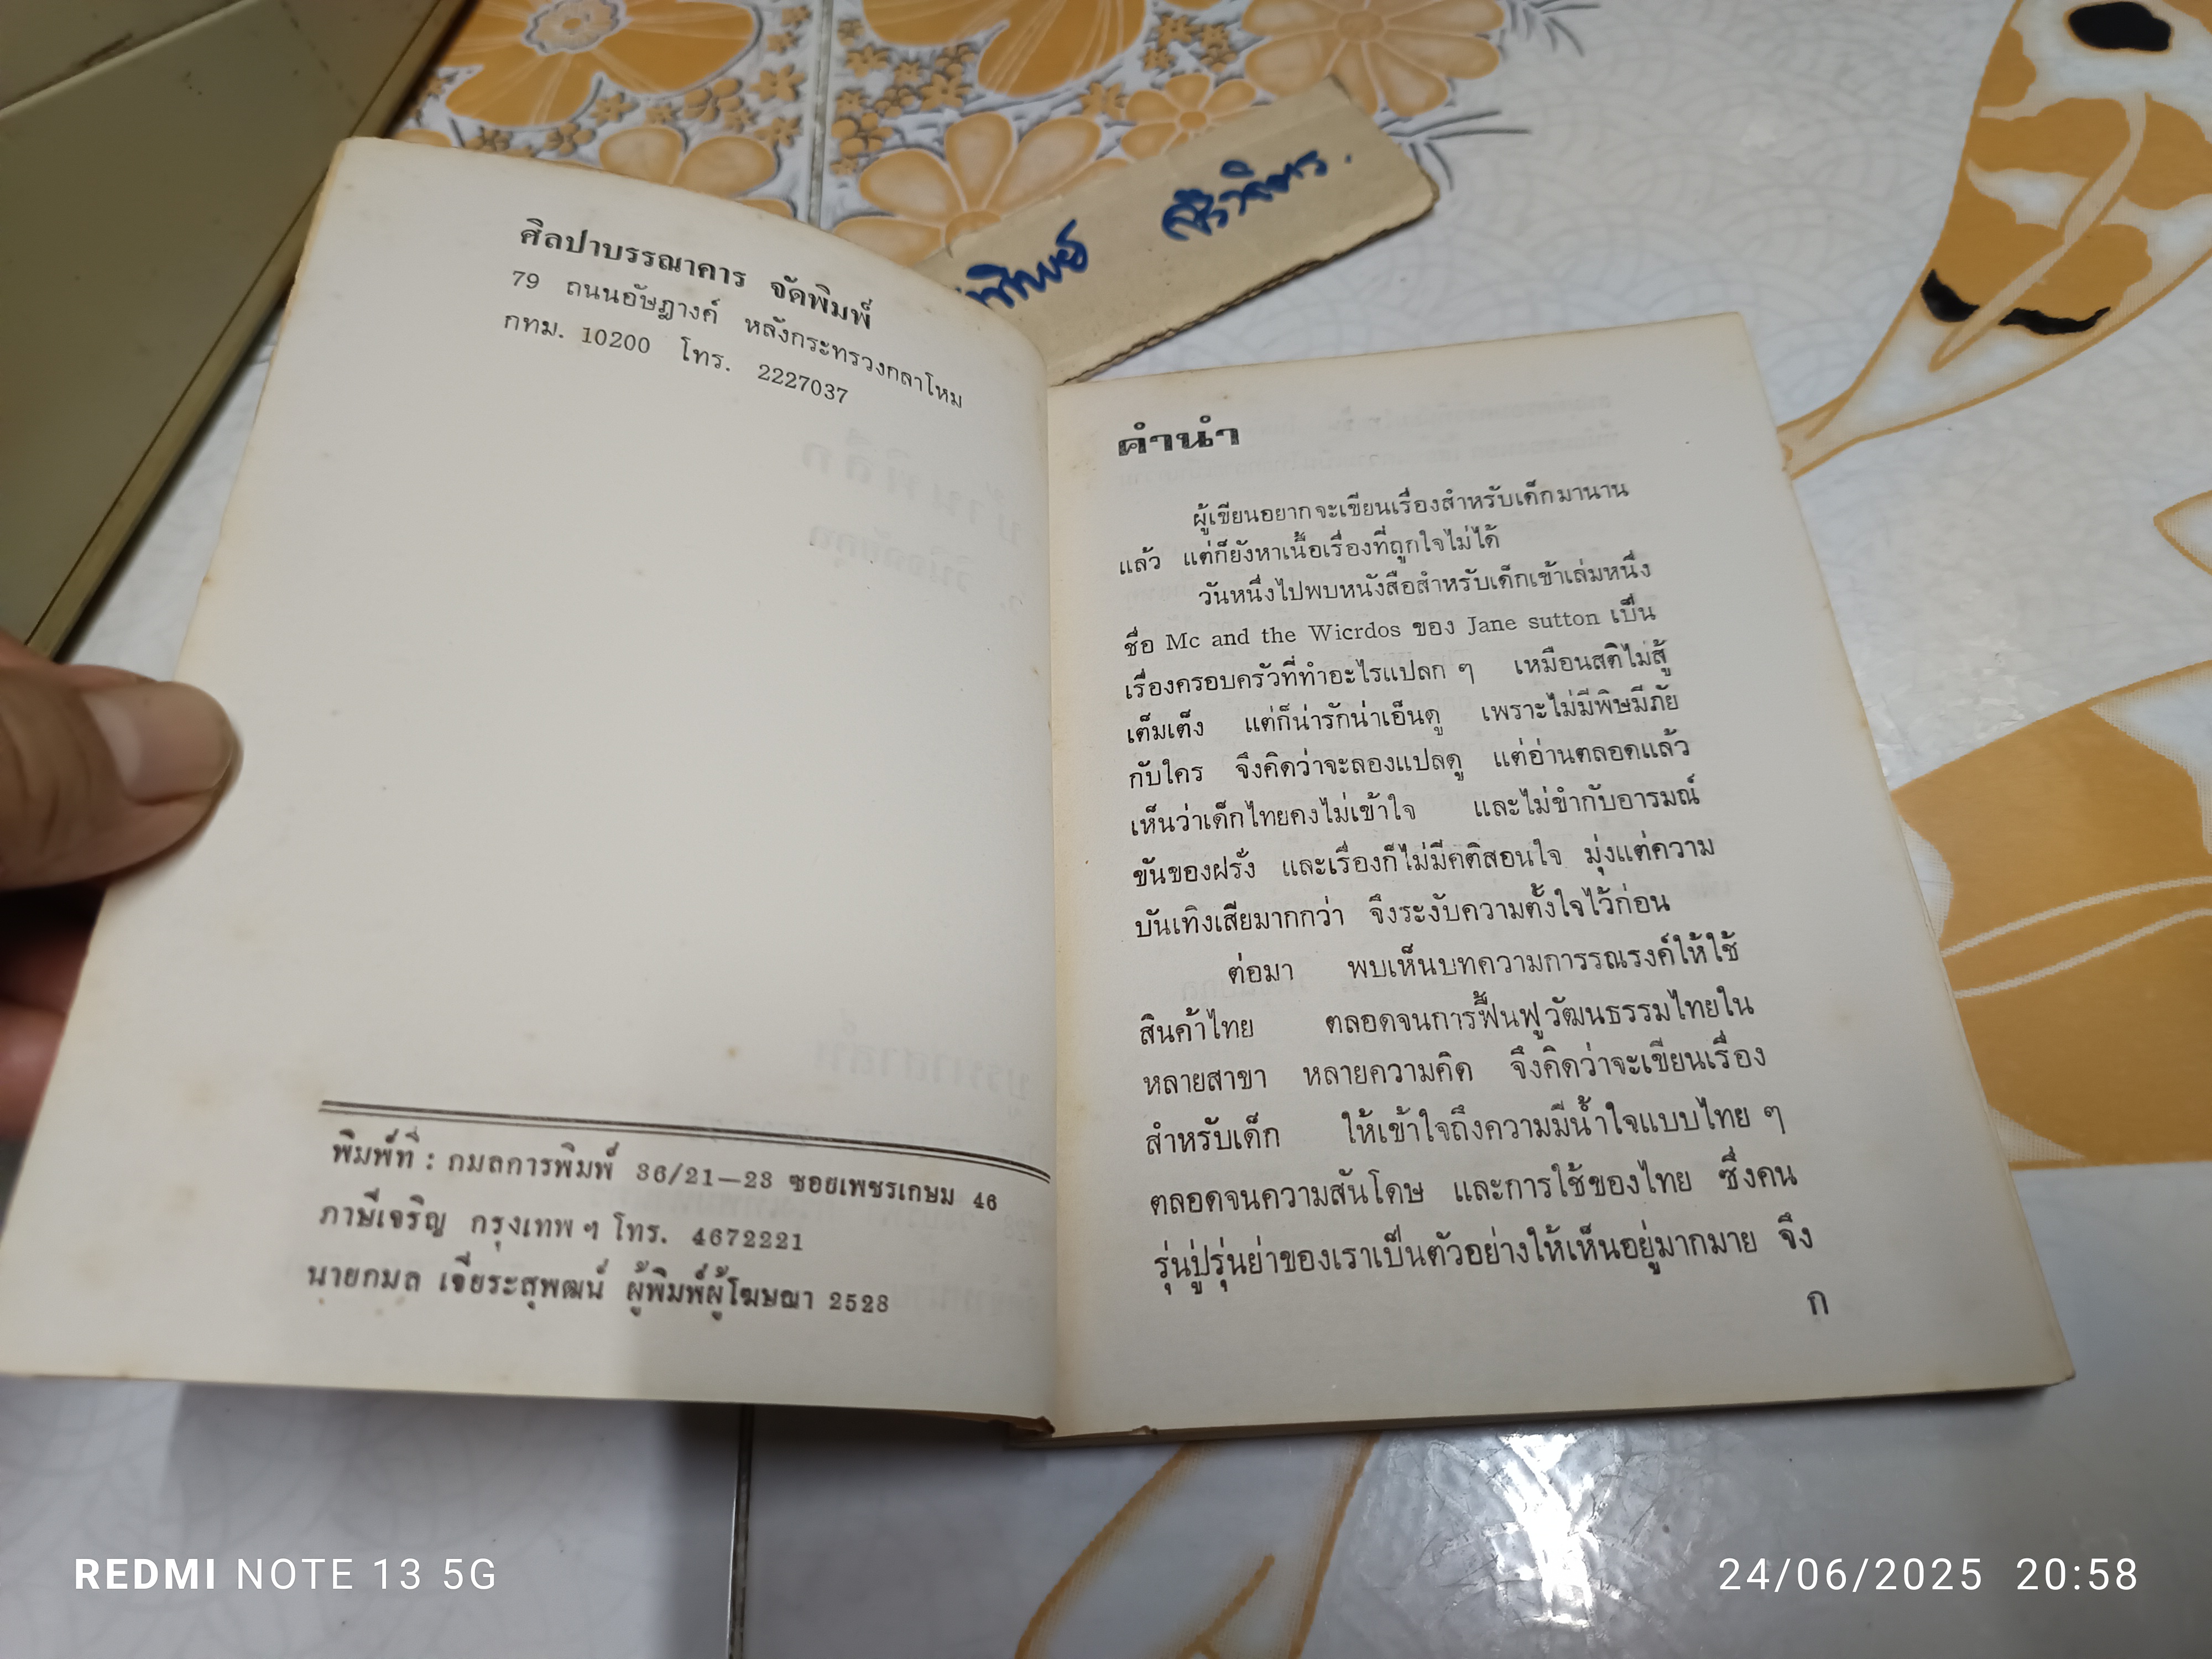 ศิลปาบรรณาคาร จัดพิมพ์
79 ถนนอัษฎางค์ หลังกระทรวงกลาโหม
กทม. 10200 โทร. 2227037
พิมพ์ที่ : กมลการพิมพ์ 36/21—23 ซอยเพชรเกษม 46
ภาษีเจริญ กรุงเทพ ฯ โทร. 4672221
นายกมล เจียระสุพฒน์ ผู้พิมพ์ผู้โฆษณา 2528
คำนำ
ผู้เขียนอยากจะเขียนเรื่องสำหรับเด็กมานาน
แล้ว แต่ก็ยังหาเนื้อเรื่องที่ถูกใจไม่ได้
วันหนึ่งไปพบหนังสือสำหรับเด็กเข้าเล่มหนึ่ง
ชื่อ Mc and the Wicrdos ของ Jane sutton เป็น
เรื่องครอบครัวที่ทำอะไรแปลก ๆ เหมือนสติไม่สู้
เต็มเต็ง แต่ก็น่ารักน่าเอ็นดู เพราะไม่มีพิษมีภัย
กับใคร จึงคิดว่าจะลองแปลดู แต่อ่านตลอดแล้ว
เห็นว่าเด็กไทยคงไม่เข้าใจ และไม่ขำกับอารมณ์
ขันของฝรั่ง และเรื่องก็ไม่มีคติสอนใจ มุ่งแต่ความ
บันเทิงเสียมากกว่า จึงระงับความตั้งใจไว้ก่อน
ต่อมา พบเห็นบทความการรณรงค์ให้ใช้
สินค้าไทย ตลอดจนการฟื้นฟูวัฒนธรรมไทยใน
หลายสาขา หลายความคิด จึงคิดว่าจะเขียนเรื่อง
สำหรับเด็ก ให้เข้าใจถึงความมีน้ำใจแบบไทย ๆ
ตลอดจนความสันโดษ และการใช้ของไทย ซึ่งคน
รุ่นปู่รุ่นย่าของเราเป็นตัวอย่างให้เห็นอยู่มากมาย จึง
ก
REDMI NOTE 13 5G
24/06/2025 20:58